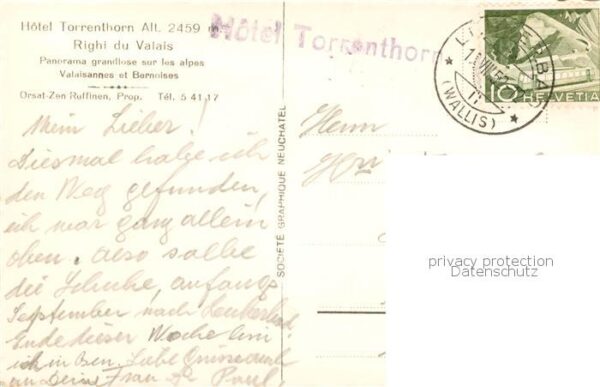 Hôtel Torrenthorn Alt. 2459 m.
Righi du Valais
Panorama grandiose sur les alpes
Valaisannes et Bernoises
Orsat-Zen Ruffinen, Prop. Tél. 5 41 17
Hôtel Torrenthorn
(WALLIS)
10 HELVETIA
SOCIÉTÉ GRAPHIQUE NEUCHATEL
Mein Lieber!
Diesmal habe ich
den Weg gefunden,
ich war ganz allein
oben. Also solle
die Schuhe, anfangs
September nach Leukerbad
Ende dieser Woche bin
ich in Bern. Liebe Grüsse auch
an Deine Frau Dr Paul.
Herrn
privacy protection
Datenschutz